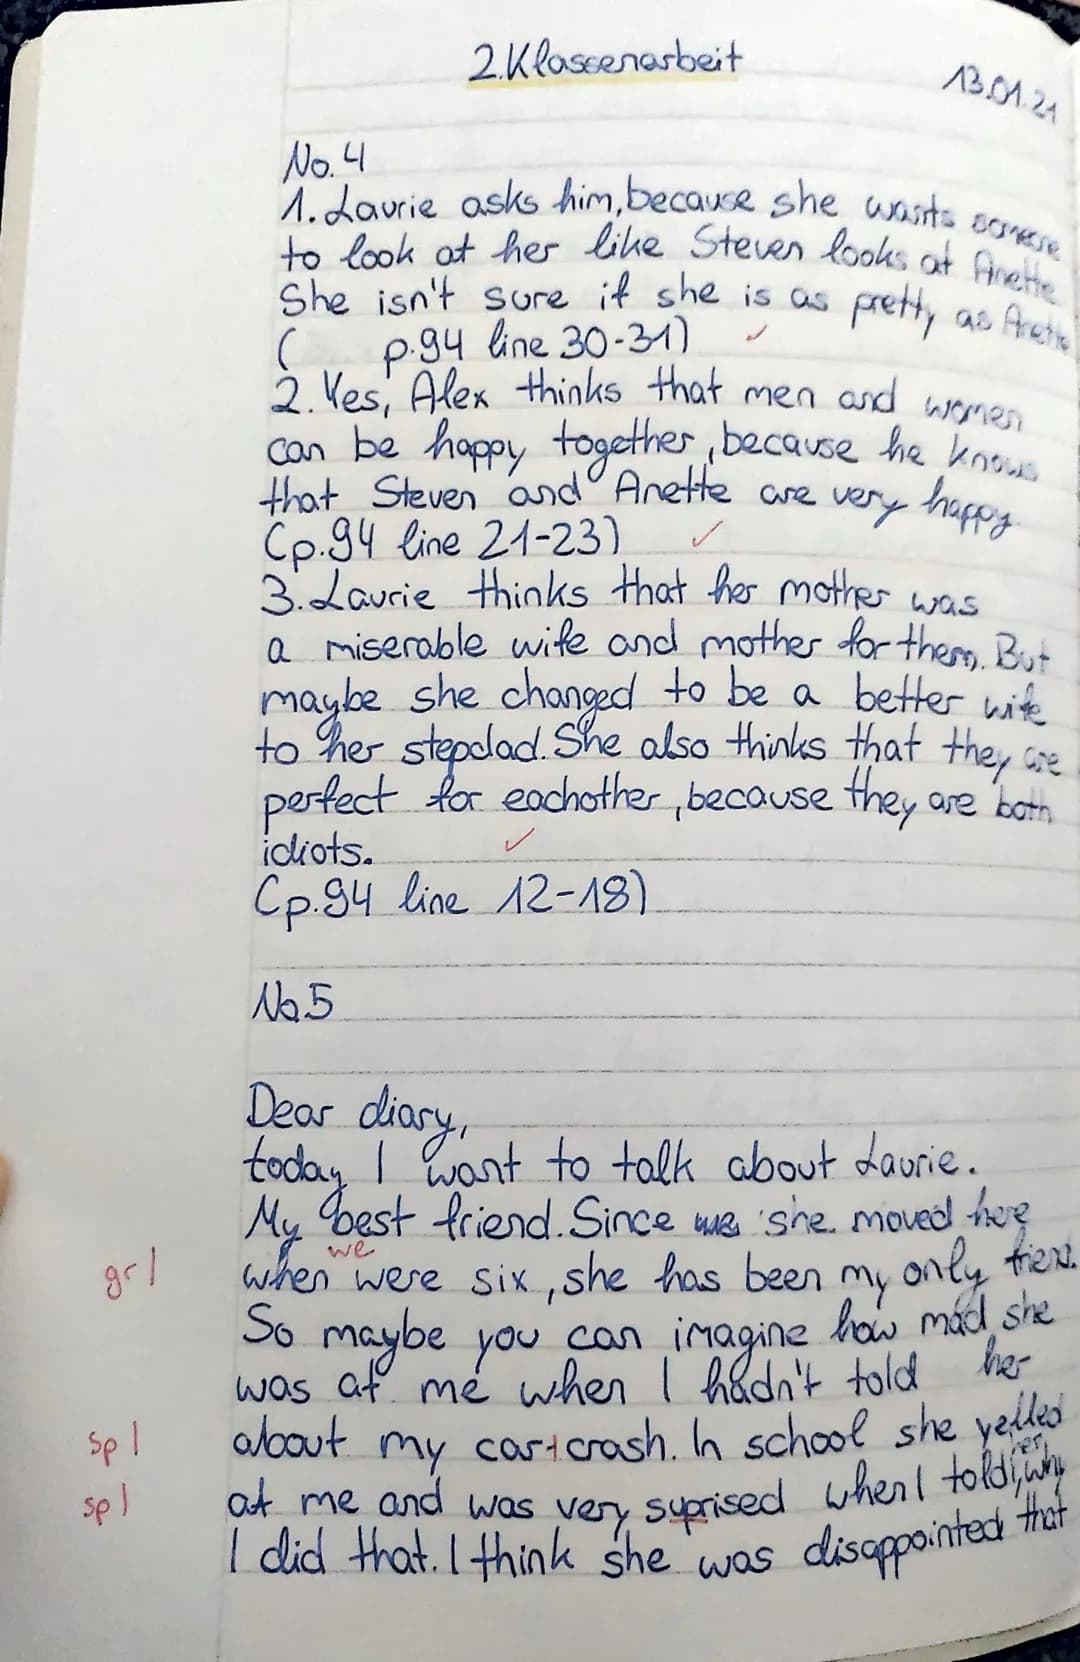 2. Klassenarbeit
13.01.21
No. 4
1. Laurie asks him, because she wants someone
to look at her like Steven looks at Anette.
She isn't sure if she is as pretty as Anette
( p.94 line 30-31) ✓
2. Yes, Alex thinks that men and women
can be happy together, because he knows
that Steven and Anette are very happy.
(p.94 line 21-23) ✓
3. Laurie thinks that her mother was
a miserable wife and mother for them. But
maybe she changed to be a better wife
to her stepdad. She also thinks that they are
perfect for eachother, because they are both
idiots. ✓
(p.94 line 12-18)
No.5
Dear diary,
today I want to talk about Laurie.
My best friend. Since she moved here
we
gr | when were six, she has been my only friend.
So maybe you can imagine how mad she
was at me when I hadn't told her
sp | about my car crash. In school she yelled
her
sp | at me and was very suprised when I told, why
I did that. I think she was disappointed that